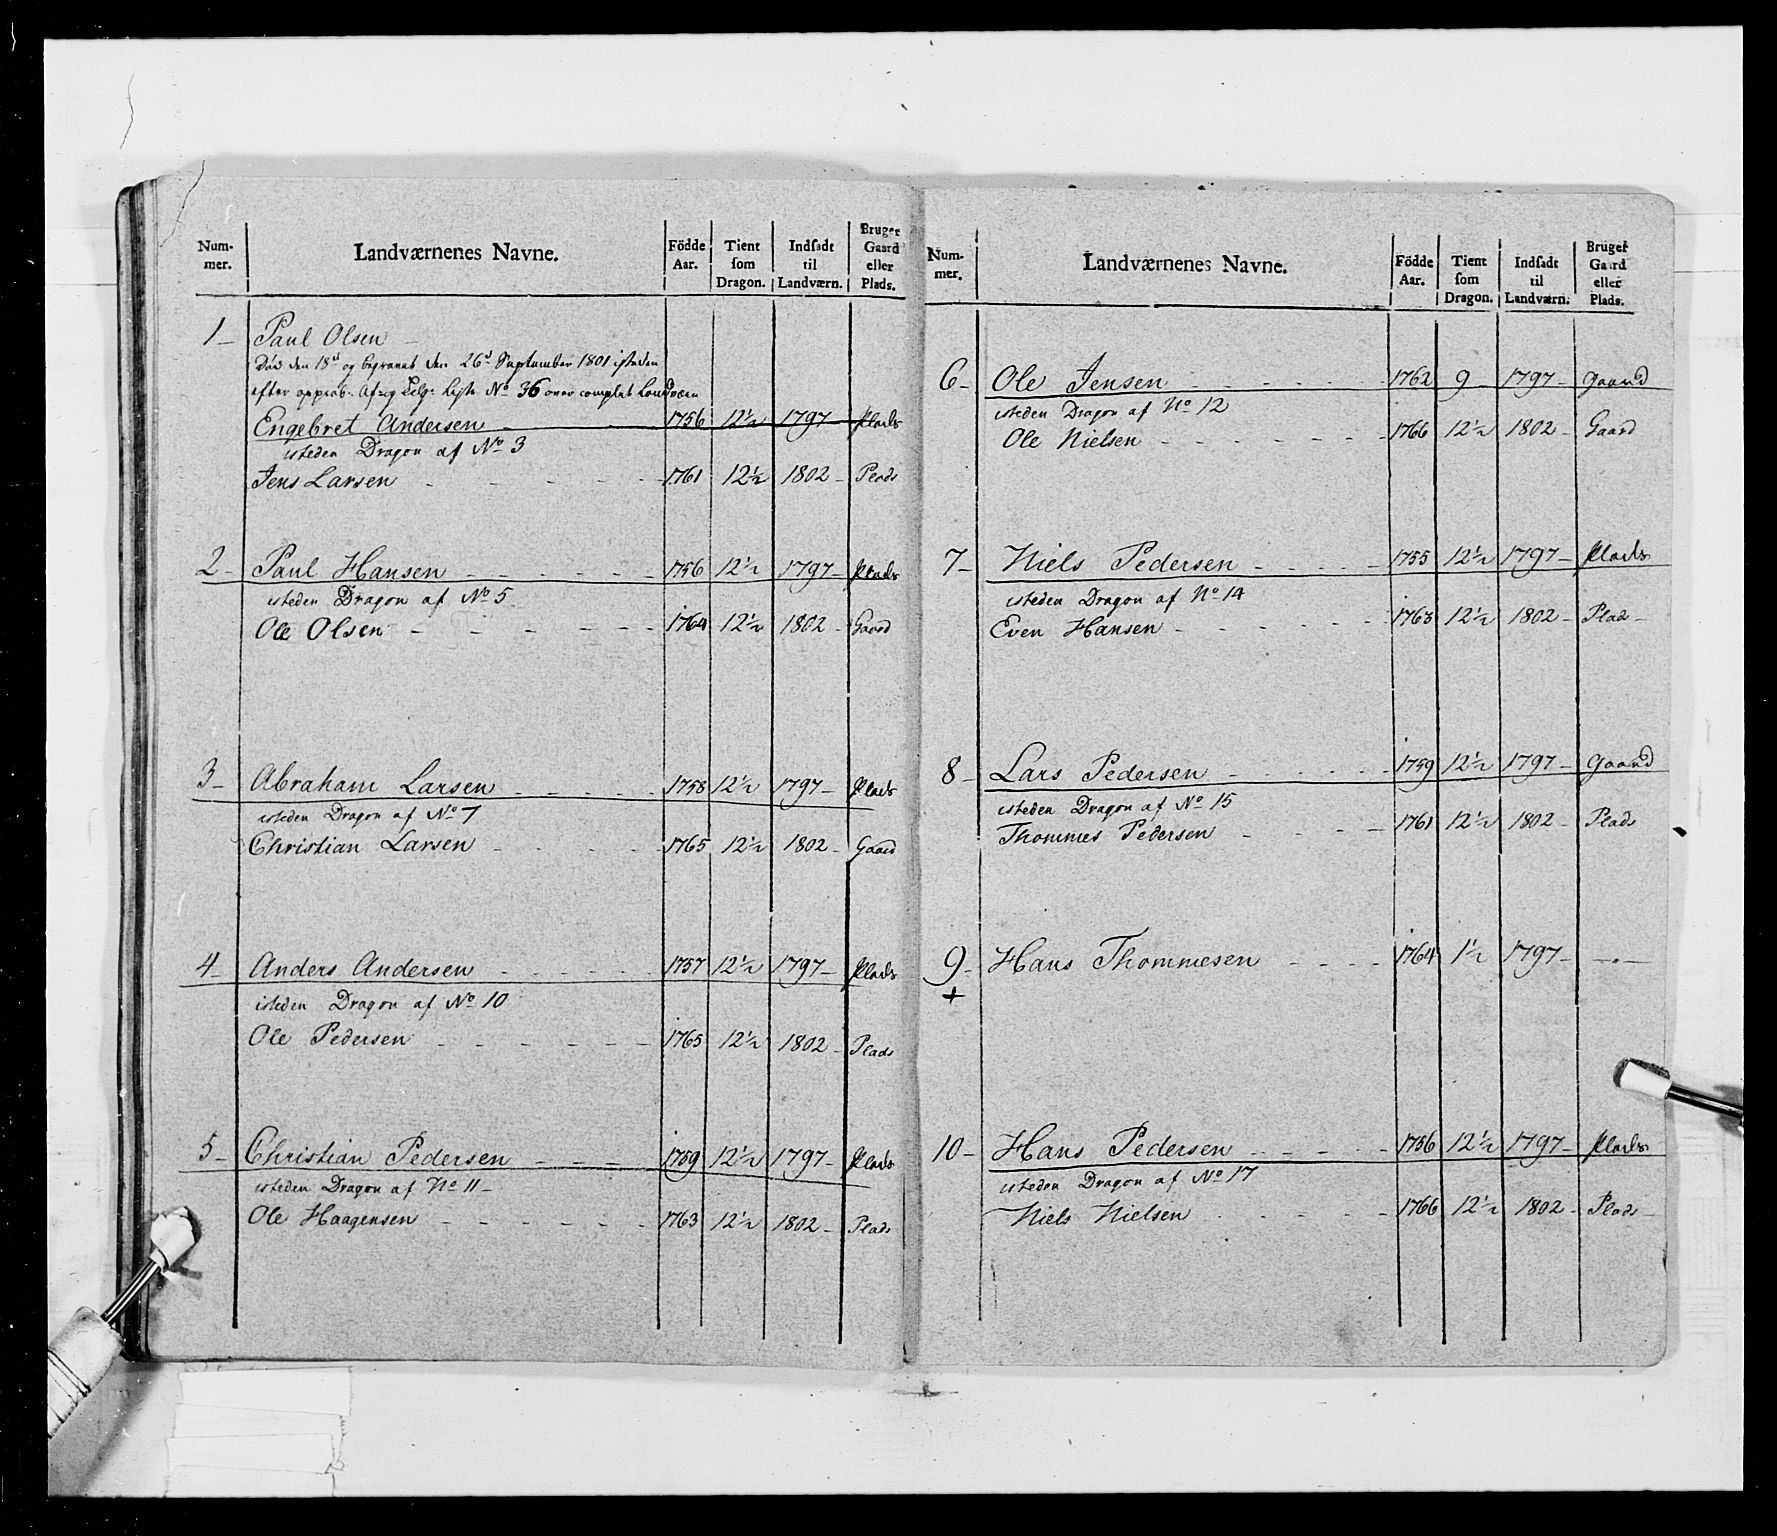 Num-
mer.
Landværnenes Navne.
Födde
Aar.
Tient
som
Dragon.
Indsadt
til
Landværn.
Bruger
Gaard
eller
Plads.
1 Paul Olsen
Död den 18d og begravet den 26d September 1801 isteden
efter approb. Liste No 36 over complet Landværn
Engebret Andersen 1756 12½ 1797 Plads
isteden Dragon af No 3
Jens Larsen 1761 12½ 1802 Plads
2 Paul Hansen 1756 12½ 1797 Plads
isteden Dragon af No 5
Ole Olsen 1764 12½ 1802 Gaard
3 Abraham Larsen 1758 12½ 1797 Plads
isteden Dragon af No 7
Christian Larsen 1765 12½ 1802 Gaard
4 Anders Andersen 1757 12½ 1797 Plads
isteden Dragon af No 10
Ole Pedersen 1765 12½ 1802 Plads
5 Christian Pedersen 1759 12½ 1797 Plads
isteden Dragon af No 11
Ole Haagensen 1763 12½ 1802 Plads
Num-
mer.
Landværnenes Navne.
Födde
Aar.
Tient
som
Dragon.
Indsadt
til
Landværn.
Bruger
Gaard
eller
Plads.
6 Ole Jensen 1762 9 1797 Gaard
isteden Dragon af No 12
Ole Nielsen 1766 12½ 1802 Gaard
7 Niels Pedersen 1755 12½ 1797 Plads
isteden Dragon af No 14
Even Hansen 1763 12½ 1802 Plad
8 Lars Pedersen 1759 12½ 1797 Gaard
isteden Dragon af No 15
Thommes Pedersen 1761 12½ 1802 Plads
9 Hans Thommesen 1764 1½ 1797
+
10 Hans Pedersen 1756 12½ 1797 Plads
isteden Dragon af No 17
Niels Nielsen 1766 12½ 1802 Plads